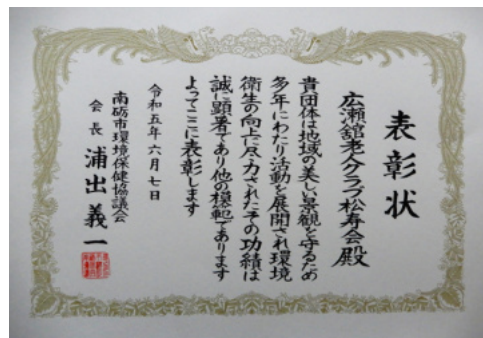 表彰状
広瀬舘老人クラブ松寿会殿
貴団体は地域の美しい景観を守るため
多年にわたり活動を展開され環境
衛生の向上に尽力されたその功績は
誠に顕著であり他の模範であります
よってここに表彰します
令和五年六月七日
南砺市環境保健協議会
会長 浦出義一